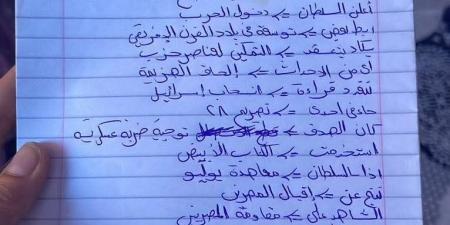 أعلن السلطان => دخول الحرب
ربط بعض => توسعة في بلاد القرن الإفريقي
=> التمكين لعناصر حزب
أى من الأحداث => إلحاق الهزيمة
تنفرد قراءة => انسحاب إسرائيل
حادى احدى => تصريح ٢٨
كان الهدف => توجية ضربة عسكرية
استخدمت => الكتاب الأبيض
اذا السلطان => معاهدة يوليو
نتج عن => إقبال المصرين
الشاهد على => مقاومة المصرين